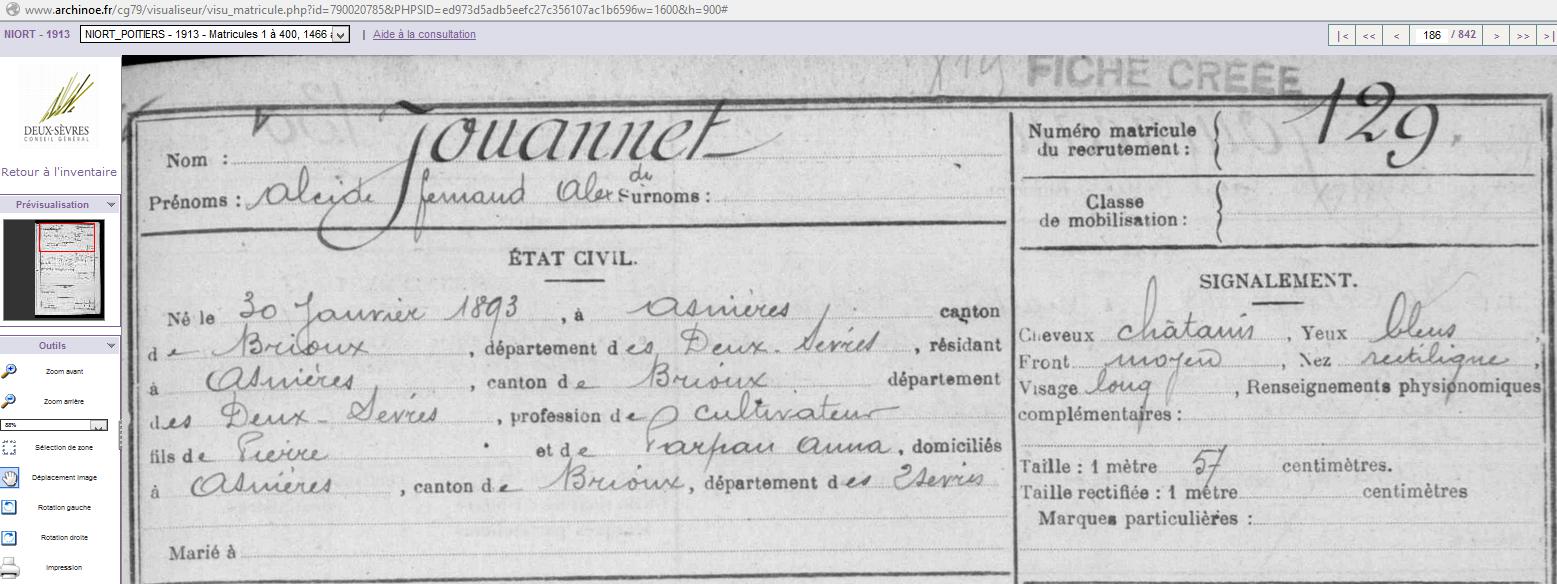 www.archinoe.fr/cg79/visualiseur/visu_matricule.php?id=790020785&PHPSID=ed973d5adb5eefc27c356107ac1b6596w=1600&h=900#
NIORT - 1913 NIORT_POITIERS - 1913 - Matricules 1 à 400, 1466 | Aide à la consultation |< << < 186 / 842 > >> >|
DEUX-SÈVRES
CONSEIL GÉNÉRAL
Retour à l'inventaire
Prévisualisation
Outils
Zoom avant
Zoom arrière
88%
Sélection de zone
Déplacement image
Rotation gauche
Rotation droite
Impression
FICHE CRÉÉE
Nom : Jouannet
Prénoms : Alcide fernand Alexandre Surnoms :
ÉTAT CIVIL.
Né le 30 Janvier 1893, à Asnières, canton
de Brioux, département des Deux-Sèvres, résidant
à Asnières, canton de Brioux département
des Deux-Sevres, profession de cultivateur
fils de Pierre et de Parpau Anna, domiciliés
à Asnières, canton de Brioux, département des 2 Sevres
Marié à
Numéro matricule
du recrutement : 129.
Classe
de mobilisation :
SIGNALEMENT.
Cheveux châtains, Yeux bleus,
Front moyen, Nez rectiligne,
Visage long, Renseignements physionomiques
complémentaires :
Taille : 1 mètre 57 centimètres.
Taille rectifiée : 1 mètre centimètres
Marques particulières :